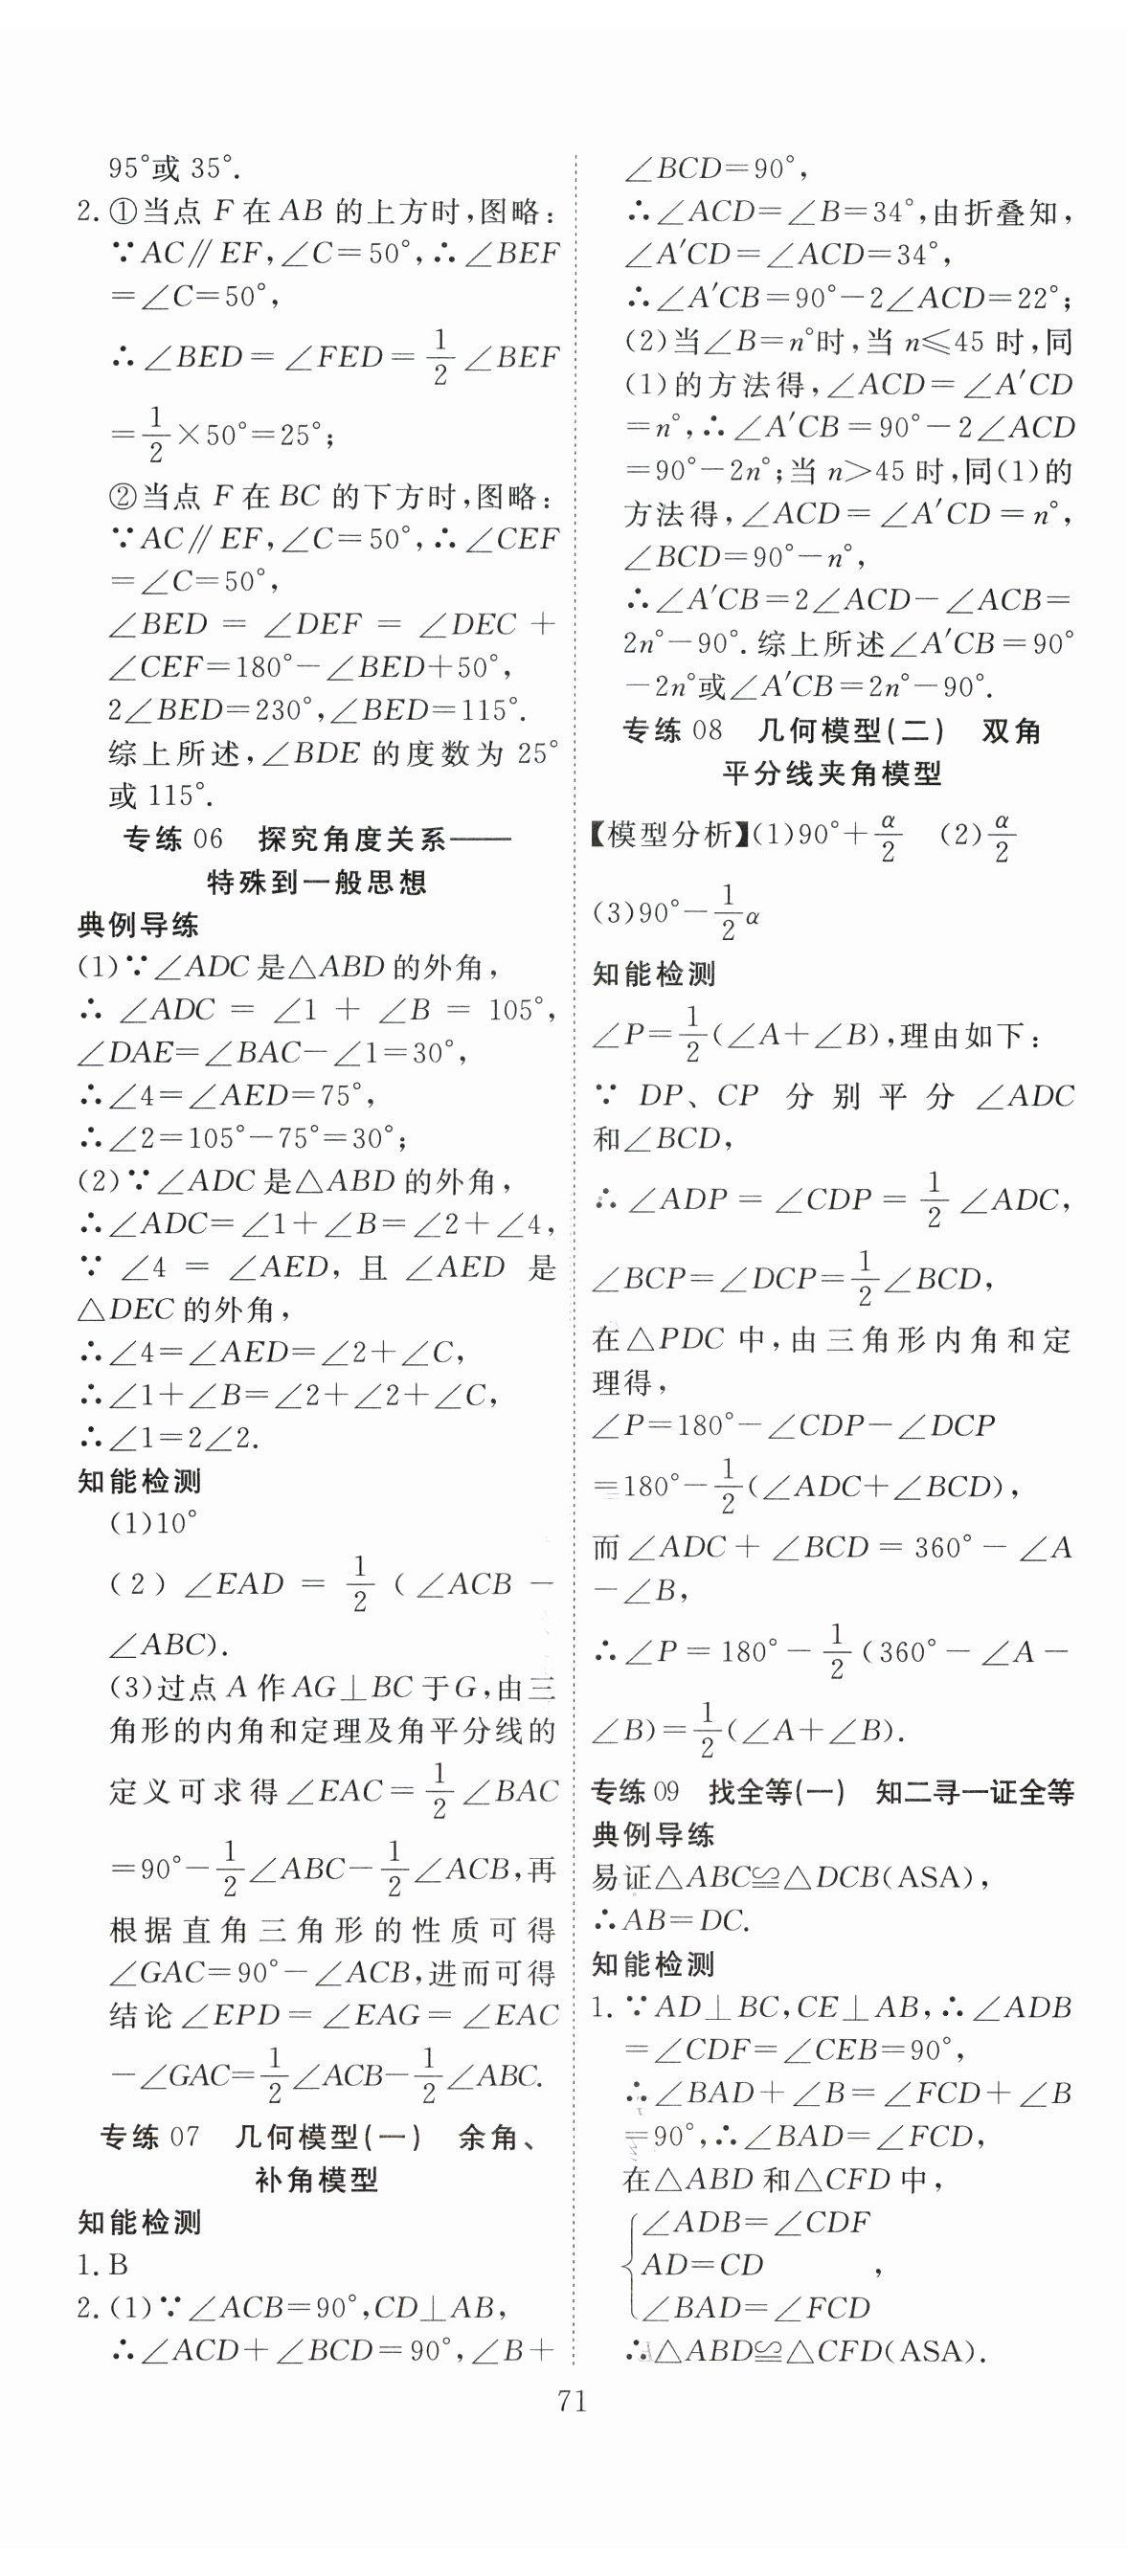 95°或 35°.
2.①当点 F 在 AB 的上方时,图略:
∵AC∥EF,∠C=50°,∴∠BEF
=∠C=50°,
∴∠BED=∠FED=1/2∠BEF
=1/2×50°=25°;
②当点 F 在 BC 的下方时,图略:
∵AC∥EF,∠C=50°,∴∠CEF
=∠C=50°,
∠BED=∠DEF=∠DEC+
∠CEF=180°-∠BED+50°,
2∠BED=230°,∠BED=115°.
综上所述,∠BDE 的度数为 25°
或 115°.
专练 06 探究角度关系——
特殊到一般思想
典例导练
(1)∵∠ADC 是△ABD 的外角,
∴∠ADC=∠1+∠B=105°,
∠DAE=∠BAC-∠1=30°,
∴∠4=∠AED=75°,
∴∠2=105°-75°=30°;
(2)∵∠ADC 是△ABD 的外角,
∴∠ADC=∠1+∠B=∠2+∠4,
∵∠4=∠AED,且∠AED 是
△DEC 的外角,
∴∠4=∠AED=∠2+∠C,
∴∠1+∠B=∠2+∠2+∠C,
∴∠1=2∠2.
知能检测
(1)10°
(2)∠EAD=1/2(∠ACB-
∠ABC).
(3)过点 A 作 AG⊥BC 于 G,由三
角形的内角和定理及角平分线的
定义可求得∠EAC=1/2∠BAC
=90°-1/2∠ABC-1/2∠ACB,再
根据直角三角形的性质可得
∠GAC=90°-∠ACB,进而可得
结论∠EPD=∠EAG=∠EAC
-∠GAC=1/2∠ACB-1/2∠ABC.
专练 07 几何模型(一) 余角、
补角模型
知能检测
1.B
2.(1)∵∠ACB=90°,CD⊥AB,
∴∠ACD+∠BCD=90°,∠B+
∠BCD=90°,
∴∠ACD=∠B=34°,由折叠知,
∠A′CD=∠ACD=34°,
∴∠A′CB=90°-2∠ACD=22°;
(2)当∠B=n°时,当 n≤45 时,同
(1)的方法得,∠ACD=∠A′CD
=n°,∴∠A′CB=90°-2∠ACD
=90°-2n°;当 n>45 时,同(1)的
方法得,∠ACD=∠A′CD=n°,
∠BCD=90°-n°,
∴∠A′CB=2∠ACD-∠ACB=
2n°-90°.综上所述∠A′CB=90°
-2n°或∠A′CB=2n°-90°.
专练 08 几何模型(二) 双角
平分线夹角模型
【模型分析】(1)90°+α/2 (2)α/2
(3)90°-1/2α
知能检测
∠P=1/2(∠A+∠B),理由如下:
∵DP、CP 分别平分∠ADC
和∠BCD,
∴∠ADP=∠CDP=1/2∠ADC,
∠BCP=∠DCP=1/2∠BCD,
在△PDC 中,由三角形内角和定
理得,
∠P=180°-∠CDP-∠DCP
=180°-1/2(∠ADC+∠BCD),
而∠ADC+∠BCD=360°-∠A
-∠B,
∴∠P=180°-1/2(360°-∠A-
∠B)=1/2(∠A+∠B).
专练 09 找全等(一) 知二寻一证全等
典例导练
易证△ABC≌△DCB(ASA),
∴AB=DC.
知能检测
1.∵AD⊥BC,CE⊥AB,∴∠ADB
=∠CDF=∠CEB=90°,
∴∠BAD+∠B=∠FCD+∠B
=90°,∴∠BAD=∠FCD,
在△ABD 和△CFD 中,
∠ADB=∠CDF
AD=CD ,
∠BAD=∠FCD
∴△ABD≌△CFD(ASA).
71